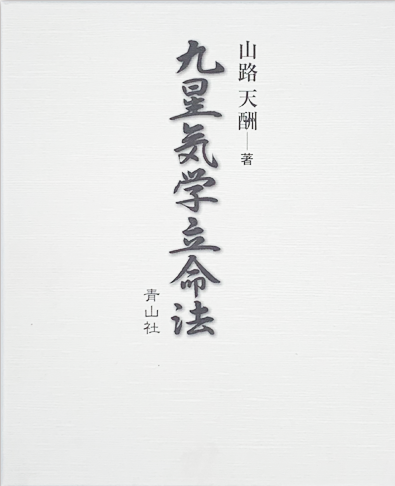 山路天酬―著
九星気学立命法
青山社